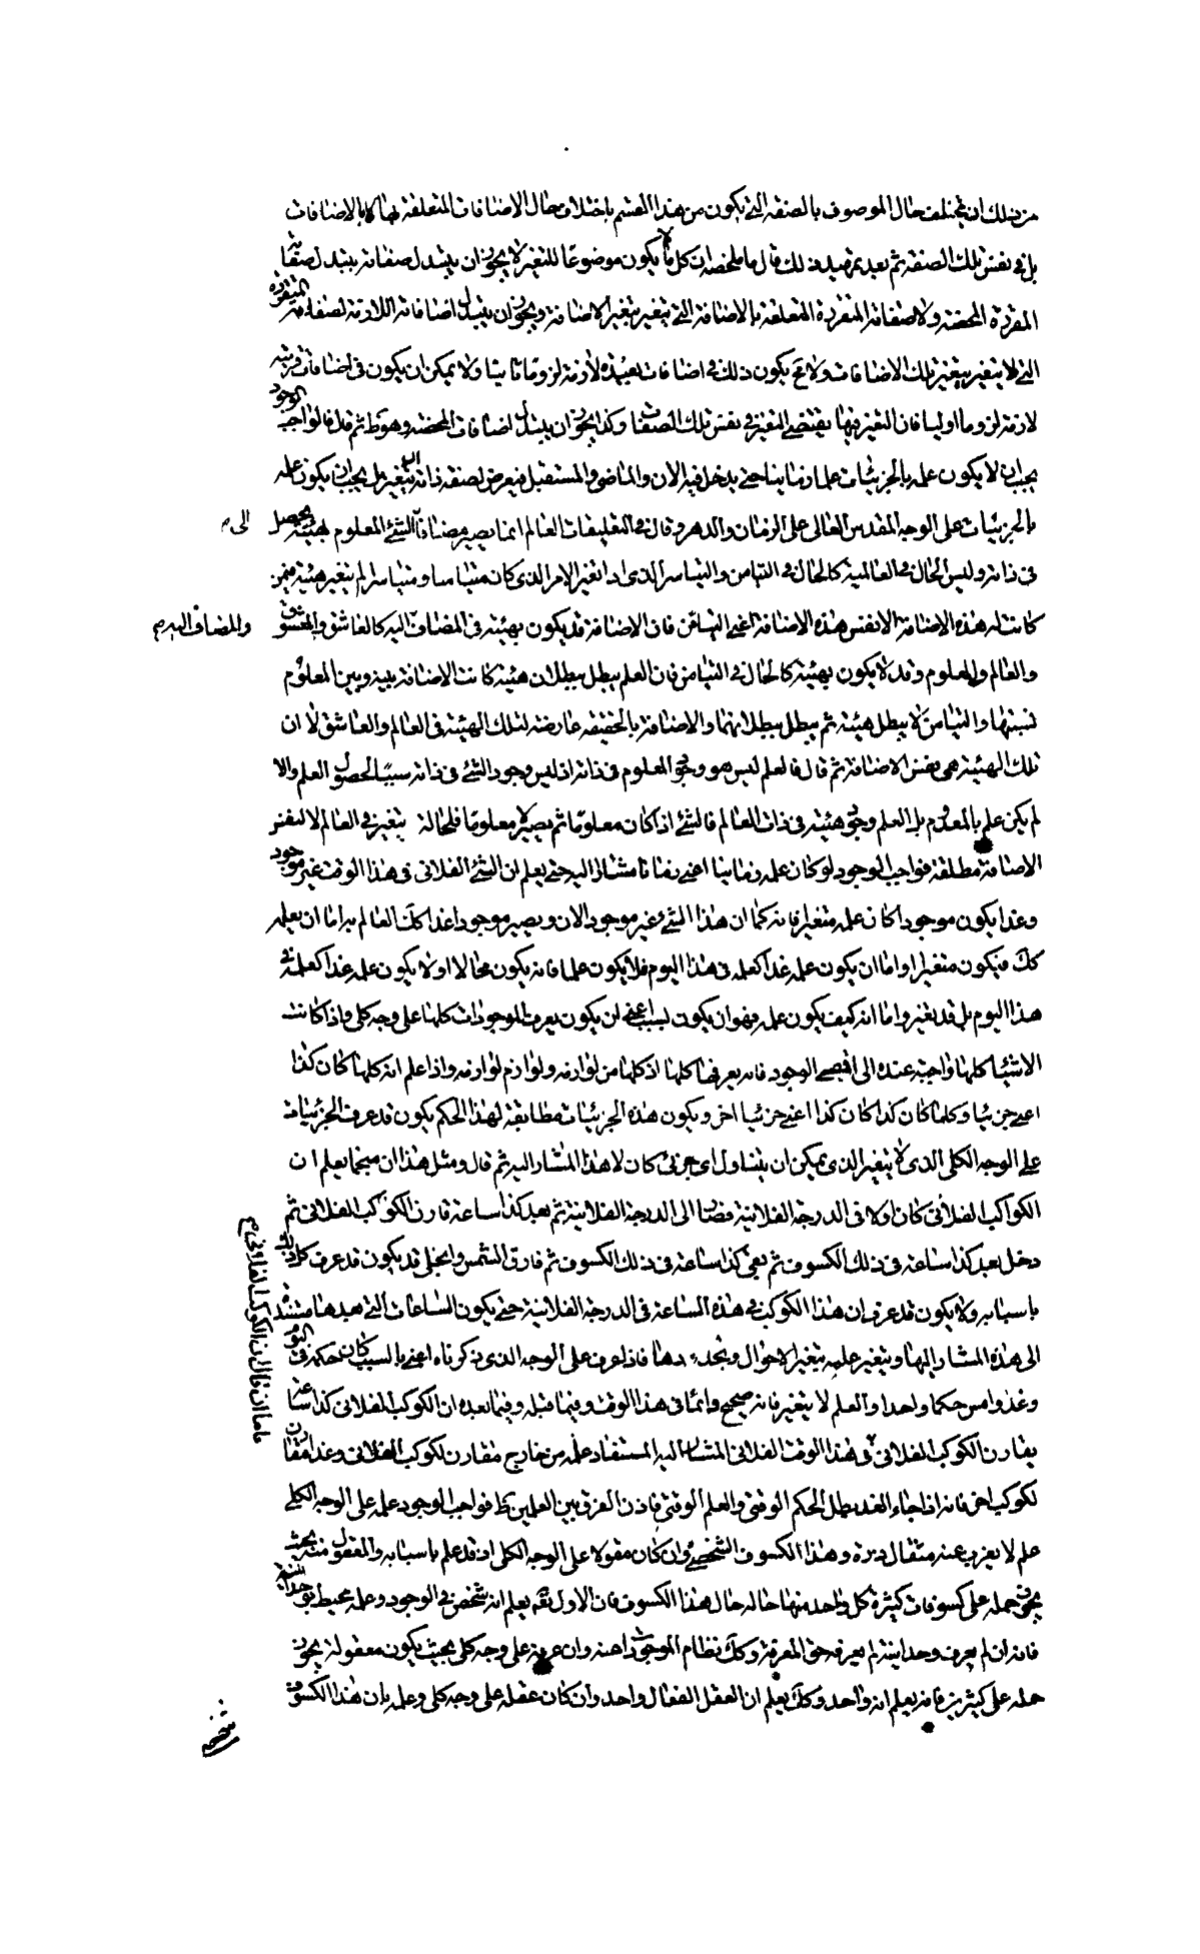 من ذلك ان يختلف حال الموصوف بالصفة التي يكون من هذا القسم باختلاف حال الاضافات المتعلقة بها لا بالاضافات
بل في نفس تلك الصفة ثم بعد تمهيد ذلك قال ما ملخصه ان كل ما لا يكون موضوعا للتغير لا يجوز ان يتبدل صفاته بتبدل صفاته
المقررة المحضة ولا صفاته المتقررة المتعلقة بالاضافة التي تتغير بتغير الاضافة ويجوز ان يتبدل اضافاته اللازمة لصفاته المتقررة
التي لا يتغير بتغير تلك الاضافات ولا مح يكون ذلك في اضافات بعيدة لازمة لزوما ثانيا ولا يمكن ان يكون في اضافات قريبة
لازمة لزوما اوليا فان التغير فيها يقتضي التغير في نفس تلك الصفات وكذا يجوز ان يتبدل اضافات المحضة وهو ظ ثم قال فالواجب الوجود
يجب ان لا يكون علمه بالجزئيات علما زمانيا حتى يدخل فيه الان والماضي والمستقبل فيعرض لصفة ذاته ان يتغير بل يجب ان يكون علمه
بالجزئيات على الوجه المقدس العالى على الزمان والدهر وقال في التعليقات العالم انما يصير مضافا الى الشئ المعلوم بهيئة يحصل
فى ذاته وليس الحال في العالمية كالحال في التيامن والتياسر الذى اذا تغير الامر الذى كان متيامنا ومتياسرا لم يتغير هيئة فيمن
كانت له هذه الاضافة الا نفس هذه الاضافة اعنى التيامن فان الاضافة قد يكون بهيئة فى المضاف اليه كالعاشق والمعشوق والمضاف اليه م
والعالم والمعلوم وقد لا يكون بهيئة كالحال في التيامن فان العلم يبطل ببطلان هيئة كانت الاضافة بينه وبين المعلوم
بسببها والتيامن لا يبطل هيئة ثم يبطل ببطلانهما والاضافة بالحقيقة عارضة لتلك الهيئة فى العالم والعاشق لا ان
تلك الهيئة هى نفس الاضافة ثم قال فالعلم ليس هو وجود المعلوم فى ذاته اذ ليس وجود الشئ فى ذاته سببا لحصول العلم والا
لم يكن علم بالمعدوم بل العلم وجود هيئة فى ذات العالم فالشئ اذا كان معلوما ثم يصير لا معلوما فلا محالة يتغير في العالم لا لنفس
الاضافة مطلقة فواجب الوجود لو كان علمه زمانيا اعنى زمانا مشارا اليه حتى يعلم ان الشئ الفلانى فى هذا الوقت غير موجود
وغدا يكون موجودا كان علمه متغيرا فانه كما ان هذا الشئ غير موجود الان ويصير موجودا غدا كك العالم به اما ان يعلمه
كك فيكون متغيرا واما ان يكون علمه غدا كعلمه فى هذا اليوم فلا يكون علما فانه يكون محالا اولا يكون علمه غدا كعلمه في
هذا اليوم بل قد تغير واما انه كيف يكون علمه فهو ان يكون بسبب اعنى ان يكون يعرف الموجودات كلها على وجه كلى واذا كانت
الاشيا كلها واجبة عنده الى اقصى الوجود فانه يعرفها كلها اذ كلها من لوازمه ولوازم لوازمه واذا علم انه كلما كان كذا
اعنى جزئيا وكلما كان كذا كان كذا اعنى جزئيا اخر ويكون هذه الجزئيات مطابقة لهذا الحكم يكون قد عرف الجزئيات
على الوجه الكلى الذى لا يتغير الذى يمكن ان يتناول اى جزئى كان لا هذا المشار اليه ثم قال ومثل هذا ان منجما يعلم ان
الكواكب الفلانى كان اولا فى الدرجة الفلانية فصار الى الدرجة الفلانية ثم بعد كذا ساعة قارن الكوكب الفلانى ثم
دخل بعد كذا ساعة فى ذلك الكسوف ثم بقي كذا ساعة فى ذلك الكسوف ثم فارق الشمس وانجلى قد يكون قد عرف كل ذلك
باسبابه ولا يكون قد عرف ان هذا الكوكب في هذه الساعة فى الدرجة الفلانية حتى يكون الساعات التى بعدها مستند
الى هذه المشار اليها ويتغير علمه بتغير الاحوال وتجددها فاذا عرف على الوجه الذى ذكرناه اعنى بالسبب كان حكمه فى اليوم
وغد وامس حكما واحدا والعلم لا يتغير فانه صحيح دائما فى هذا الوقت وفيما قبله وفيما بعده ان الكوكب الفلانى كذا
يقارن الكوكب الفلانى في هذا الوقت الفلانى المشار اليه المستفاد علمه من خارج مقارن لكوكب الفلانى وغدا مقارن
لكوكب اخر فانه اذا جاء الغد بطل الحكم الوقتى والعلم الوقتى فاذن الفرق بين العلمين ظ فواجب الوجود علمه على الوجه الكلي
علم لا يعزب عنه مثقال ذرة وهذا الكسوف الشخصى وان كان مقولا على الوجه الكلى اذ قد علم باسبابه والمعقول منه بحيث
يجوز حمله على كسوفات كثيرة كل واحد منها حاله حال هذا الكسوف فان الاول تع يعلم انه شخص في الوجود وعلمه محيط بوحدانيته
فانه ان لم يعرف وحدانيته لم يعرفه حق المعرفة وكك نظام الموجودات عنه وان عرفه على وجه كلى بحيث يكون معقوله يجوز
حمله على كثيرين فانه يعلم انه واحد وكك يعلم ان العقل الفعال واحد وان كان عقله على وجه كلى وعلمه بان هذا الكسوف
الى م
فاما ان قال ان الكوكب الفلانى م
شخصى